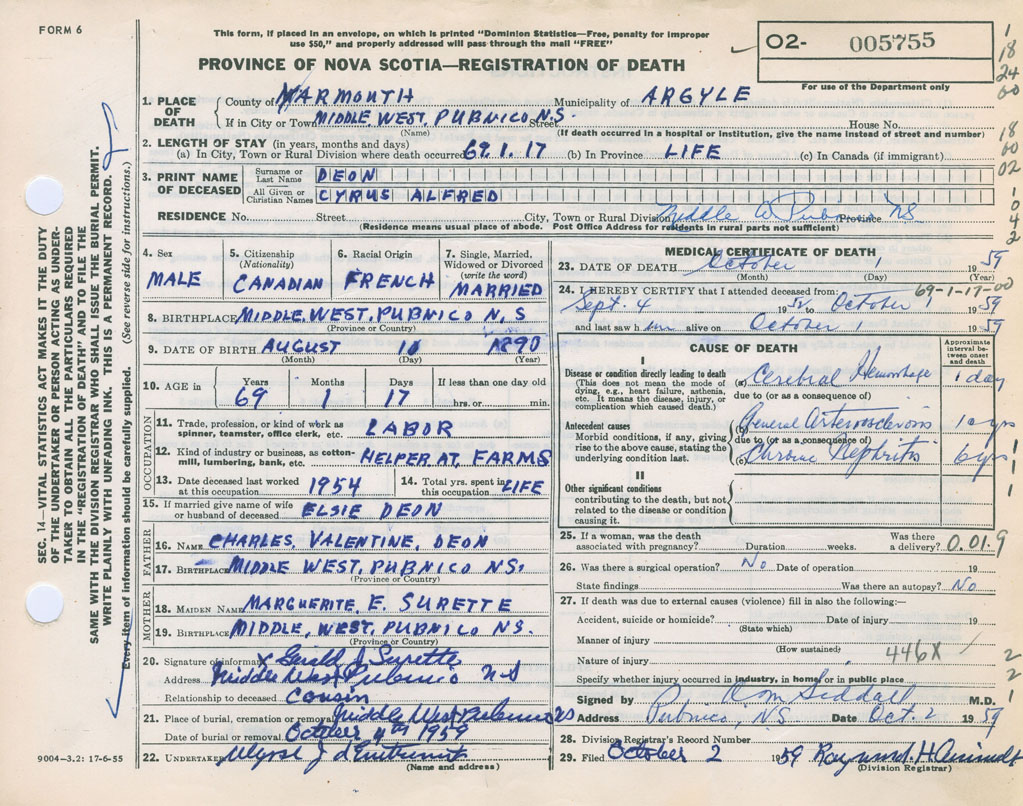 FORM 6
This form, if placed in an envelope, on which is printed "Dominion Statistics—Free, penalty for improper
use $50," and properly addressed will pass through the mail "FREE"
PROVINCE OF NOVA SCOTIA—REGISTRATION OF DEATH
02- 005755
For use of the Department only
1
18
24
00
18
00
02
1
0
4
2
1. PLACE OF DEATH
County of YARMOUTH Municipality of ARGYLE
If in City or Town MIDDLE, WEST, PUBNICO N.S. Street House No.
(Name) (If death occurred in a hospital or institution, give the name instead of street and number)
2. LENGTH OF STAY (in years, months and days)
(a) In City, Town or Rural Division where death occurred 69.1.17 (b) In Province LIFE (c) In Canada (if immigrant)
3. PRINT NAME OF DECEASED
Surname or Last Name DEON
All Given or Christian Names CYRUS ALFRED
RESIDENCE No. Street City, Town or Rural Division Middle W. Pubnico Province NS
(Residence means usual place of abode. Post Office Address for residents in rural parts not sufficient)
4. Sex
MALE
5. Citizenship
(Nationality)
CANADIAN
6. Racial Origin
FRENCH
7. Single, Married,
Widowed or Divorced
(write the word)
MARRIED
8. BIRTHPLACE MIDDLE, WEST, PUBNICO N, S
(Province or Country)
9. DATE OF BIRTH AUGUST 1890
(Month) (Day) (Year)
10. AGE in
Years Months Days If less than one day old
69 1 17 hrs. or min.
OCCUPATION
11. Trade, profession, or kind of work as
spinner, teamster, office clerk, etc. LABOR
12. Kind of industry or business, as cotton-
mill, lumbering, bank, etc. HELPER AT, FARMS
13. Date deceased last worked
at this occupation 1954
14. Total yrs. spent in
this occupation LIFE
15. If married give name of wife
or husband of deceased ELSIE DEON
FATHER
16. NAME CHARLES, VALENTINE, DEON
17. BIRTHPLACE MIDDLE WEST, PUBNICO NS.
(Province or Country)
MOTHER
18. MAIDEN NAME MARGUERITE, E. SURETTE
19. BIRTHPLACE MIDDLE, WEST, PUBNICO NS.
(Province or Country)
20. Signature of informant X Gerald J Surette
Address Middle West Pubnico N S
Relationship to deceased Cousin
21. Place of burial, cremation or removal Middle West Pubnico NS
Date of burial or removal October 4th 1959
22. UNDERTAKER Ulysse J d'Entremont
(Name and address)
9004—3.2: 17-6-55
MEDICAL CERTIFICATE OF DEATH
23. DATE OF DEATH October 1 1959
(Month) (Day) (Year)
69-1-17-00
24. I HEREBY CERTIFY that I attended deceased from:
Sept. 4 19 to October 1 1959
and last saw him alive on October 1 1959
CAUSE OF DEATH
Approximate interval between onset and death
I
Disease or condition directly leading to death
(This does not mean the mode of
dying, e.g., heart failure, asthenia,
etc. It means the disease, injury, or
complication which caused death.)
(a) Cerebral Hemorrhage 1 day
due to (or as a consequence of)
Antecedent causes
Morbid conditions, if any, giving
rise to the above cause, stating the
underlying condition last.
(b) General Arteriosclerosis 10 yrs
due to (or as a consequence of)
(c) Chronic Nephritis 6 yrs
II
Other significant conditions
contributing to the death, but not
related to the disease or condition
causing it.
1
1
1
25. If a woman, was the death
associated with pregnancy? Duration weeks. Was there
a delivery? 0.01.9
26. Was there a surgical operation? No Date of operation 19
State findings Was there an autopsy? No
27. If death was due to external causes (violence) fill in also the following:—
Accident, suicide or homicide? Date of injury 19
(State which)
Manner of injury
(How sustained)
446X
Nature of injury
Specify whether injury occurred in industry, in home, or in public place
2
2
1
Signed by O M Siddall M.D.
Address Pubnico, NS Date Oct. 2 1959
28. Division Registrar's Record Number
29. Filed October 2 1959 Raymond H
(Division Registrar)
SEC. 14—VITAL STATISTICS ACT MAKES IT THE DUTY
OF THE UNDERTAKER OR PERSON ACTING AS UNDER-
TAKER TO OBTAIN ALL THE PARTICULARS REQUIRED
IN THE "REGISTRATION OF DEATH" AND TO FILE THE
SAME WITH THE DIVISION REGISTRAR WHO SHALL ISSUE THE BURIAL PERMIT.
WRITE PLAINLY WITH UNFADING INK. THIS IS A PERMANENT RECORD.
Every item of information should be carefully supplied. (See reverse side for instructions.)